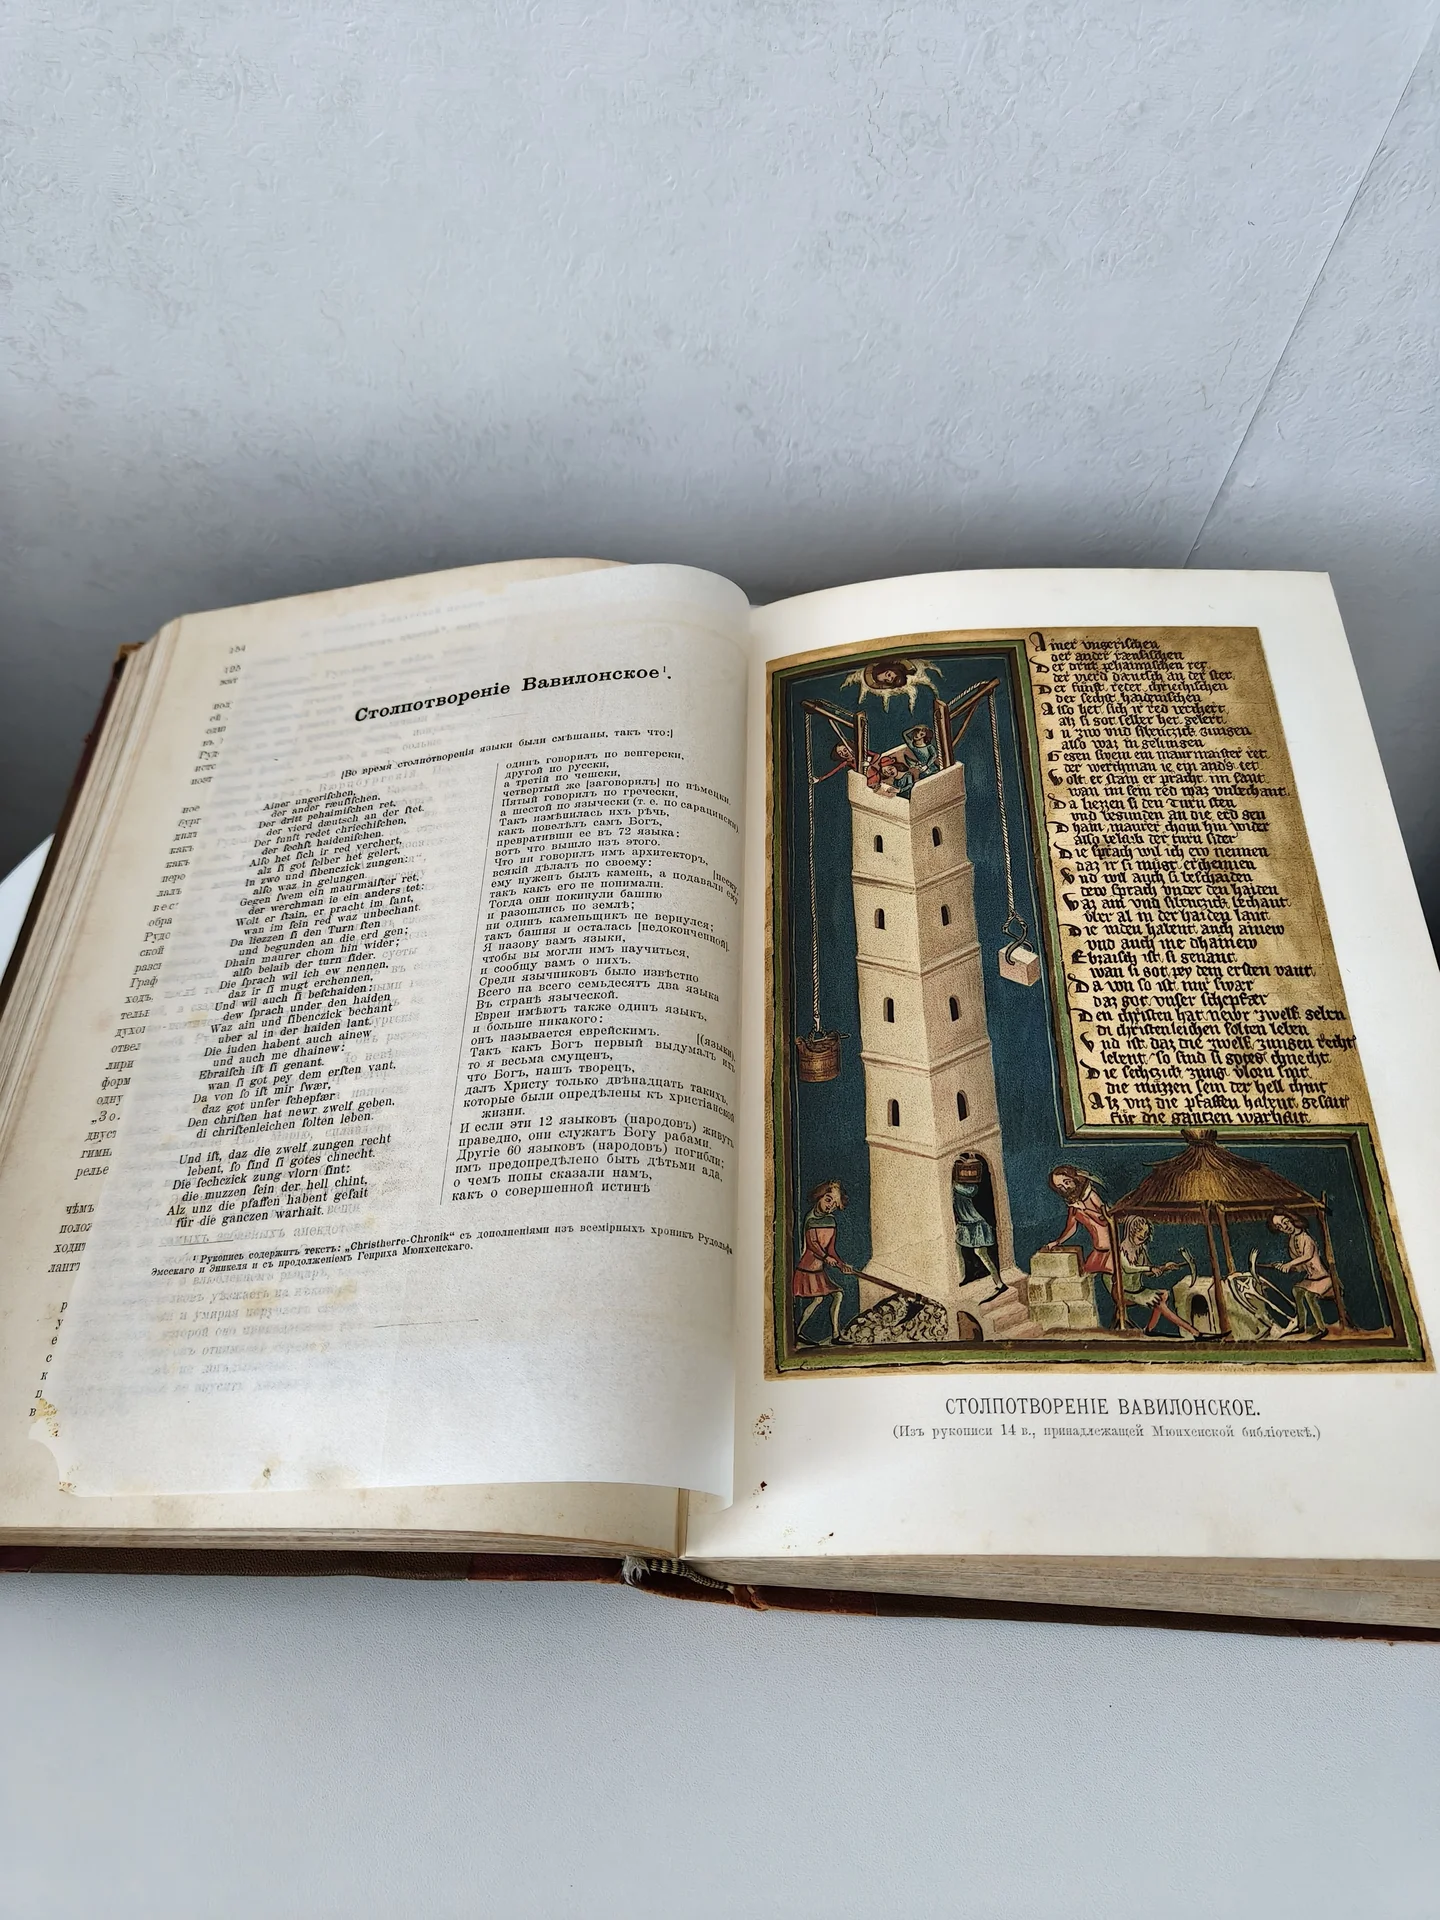 134
Столпотвореніе Вавилонское¹.
[Во время столпотворенія языки были смѣшаны, такъ что:]
Ainer ungeriſchen,
der ander ræuſſiſchen,
Der dritt pehaimiſchen ret,
der vierd dæutſch an der ſtet.
Der funft redet chriechiſchen,
der ſechſt haideniſchen.
Alſo het ſich ir red verchert,
alz ſi got ſelber het gelert.
In zwo und ſibenczick zungen:
alſo waz in gelungen.
Gegen ſwem ein maurmaiſter ret,
der werchman ie ein anders tet:
Wolt er ſtain, er pracht im ſant,
wan im ſein red waz unbechant.
Da liezzen ſi den Turn ſten
und begunden an die erd gen;
Dhain maurer chom hin wider;
alſo belaib der turn ſider.
Die ſprach wil ich ew nennen,
daz ir ſi mugt erchennen,
Und wil auch ſi beſchaiden:
dew ſprach under den haiden
Waz ain und ſibenczick bechant
uber al in der haiden lant.
Die iuden habent auch ainew
und auch me dhainew:
Ebraiſch iſt ſi genant.
wan ſi got pey dem erſten vant,
Da von ſo iſt mir ſwær,
daz got unſer ſchepfær
Den chriſten hat newr zwelf geben,
di chriſtenleichen ſolten leben.
Und iſt, daz die zwelf zungen recht
lebent, ſo ſind ſi gotes chnecht.
Die ſechczick zung vlorn ſint:
die muzzen ſein der hell chint,
Alz unz die pfaffen habent geſait
für die ganczen warhait.
одинъ говорилъ по венгерски,
другой по русски,
а третій по чешски,
четвертый же [заговорилъ] по нѣмецки.
Пятый говорилъ по гречески,
а шестой по язычески (т. е. по сарацински)
Такъ измѣнилась ихъ рѣчь,
какъ повелѣлъ самъ Богъ,
превративши ее въ 72 языка:
вотъ что вышло изъ этого.
Что ни говорилъ имъ архитекторъ,
всякій дѣлалъ по своему:
ему нуженъ былъ камень, а подавали ему [песку,
такъ какъ его не понимали.
Тогда они покинули башню
и разошлись по землѣ;
ни одинъ каменьщикъ не вернулся;
такъ башня и осталась [недоконченной].
Я назову вамъ языки,
чтобы вы могли имъ научиться,
и сообщу вамъ о нихъ.
Среди язычниковъ было извѣстно
Всего на всего семьдесятъ два языка
Въ странѣ языческой.
Евреи имѣютъ также одинъ языкъ,
и больше никакого:
онъ называется еврейскимъ.
Такъ какъ Богъ первый выдумалъ ихъ [(языки),
то я весьма смущенъ,
что Богъ, нашъ творецъ,
далъ Христу только двѣнадцать такихъ,
которые были опредѣлены къ христіанской
жизни.
И если эти 12 языковъ (народовъ) живутъ
праведно, они служатъ Богу рабами.
Другіе 60 языковъ (народовъ) погибли;
имъ предопредѣлено быть дѣтьми ада,
о чемъ попы сказали намъ,
какъ о совершенной истинѣ
¹ Рукопись содержитъ текстъ: „Christherre-Chronik“ съ дополненіями изъ всемірныхъ хроникъ Рудольфа
Эмсскаго и Эникеля и съ продолженіемъ Генриха Мюнхенскаго.
Ainer vngerischen
der ander ræusischen
Der dritt pehaimischen ret
der vierd dæutsch an der stet
Der funft redet chriechischen
der sechst haidenischen
Also het sich ir red verchert
alz si got selber het gelert
In zwo vnd sibenczick zungen
also waz in gelungen
Gegen swem ein maurmaister ret
der werchman ie ein anders tet
Wolt er stain er pracht im sant
wan im sein red waz vnbechant
Da liezzen si den Turn sten
vnd begunden an die erd gen
Dhain maurer chom hin wider
also belaib der turn sider
Die sprach wil ich ew nennen
daz ir si mügt erchennen
Vnd wil auch si beschaiden
dew sprach vnder den haiden
Waz ain vnd sibenczick bechant
vber al in der haiden lant
Die iuden habent auch ainew
vnd auch me dhainew
Ebraisch ist si genant
wan si got pey dem ersten vant
Da von so ist mir swær
daz got vnser schepfær
Den christen hat newr zwelf geben
di christenleichen solten leben
Vnd ist daz die zwelf zungen recht
lebent so sind si gotes chnecht
Die sechczick zung vlorn sint
die müzzen sein der hell chint
Alz vnz die pfaffen habent gesait
für die ganczen warheit
СТОЛПОТВОРЕНІЕ ВАВИЛОНСКОЕ.
(Изъ рукописи 14 в., принадлежащей Мюнхенской библіотекѣ.)